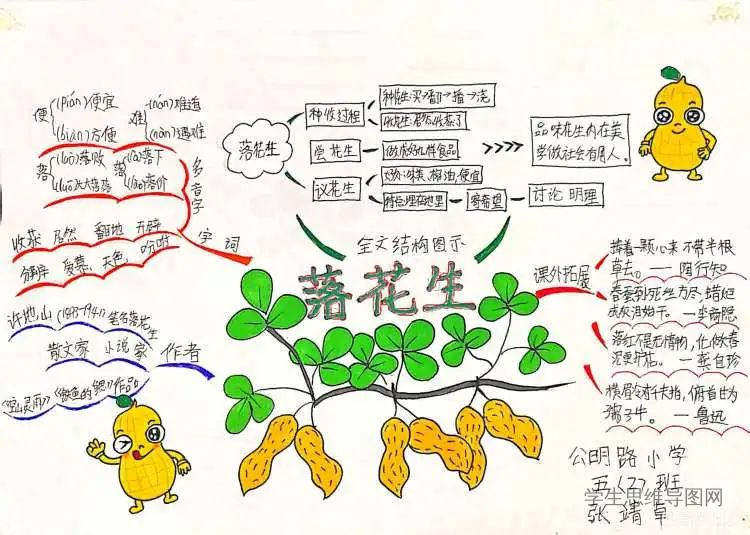 便
(pián)便宜
(biàn)方便
难
(nán)难道
(nàn)遇难
落
(luò)落败
落
(là)落下
(lào)落价
多音字
收获 居然 翻地 开辟
爱慕、茶色、吩咐
字词
许地山(1893-1941)笔名落花生
散文家 小说家
作者
落花生
种收过程
种花生:买→翻→播→浇
收花生:居然收获了
尝花生
议花生
品味花生内在美
学做社会有用人。
特点:埋在地里
寄希望
讨论 明理
全文结构图示
落花生
课外拓展
捧着一颗心来,不带半根
草去。——陶行知
春蚕到死丝方尽,蜡炬
成灰泪始干。——李商隐
落红不是无情物,化做春
泥更护花。——龚自珍
横眉冷对千夫指,俯首甘为
孺子牛。——鲁迅
公明路小学
五(7)班
张靖草
学生思维导图网